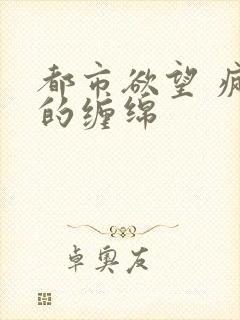 都市欲望
的缠绵
卓奥友